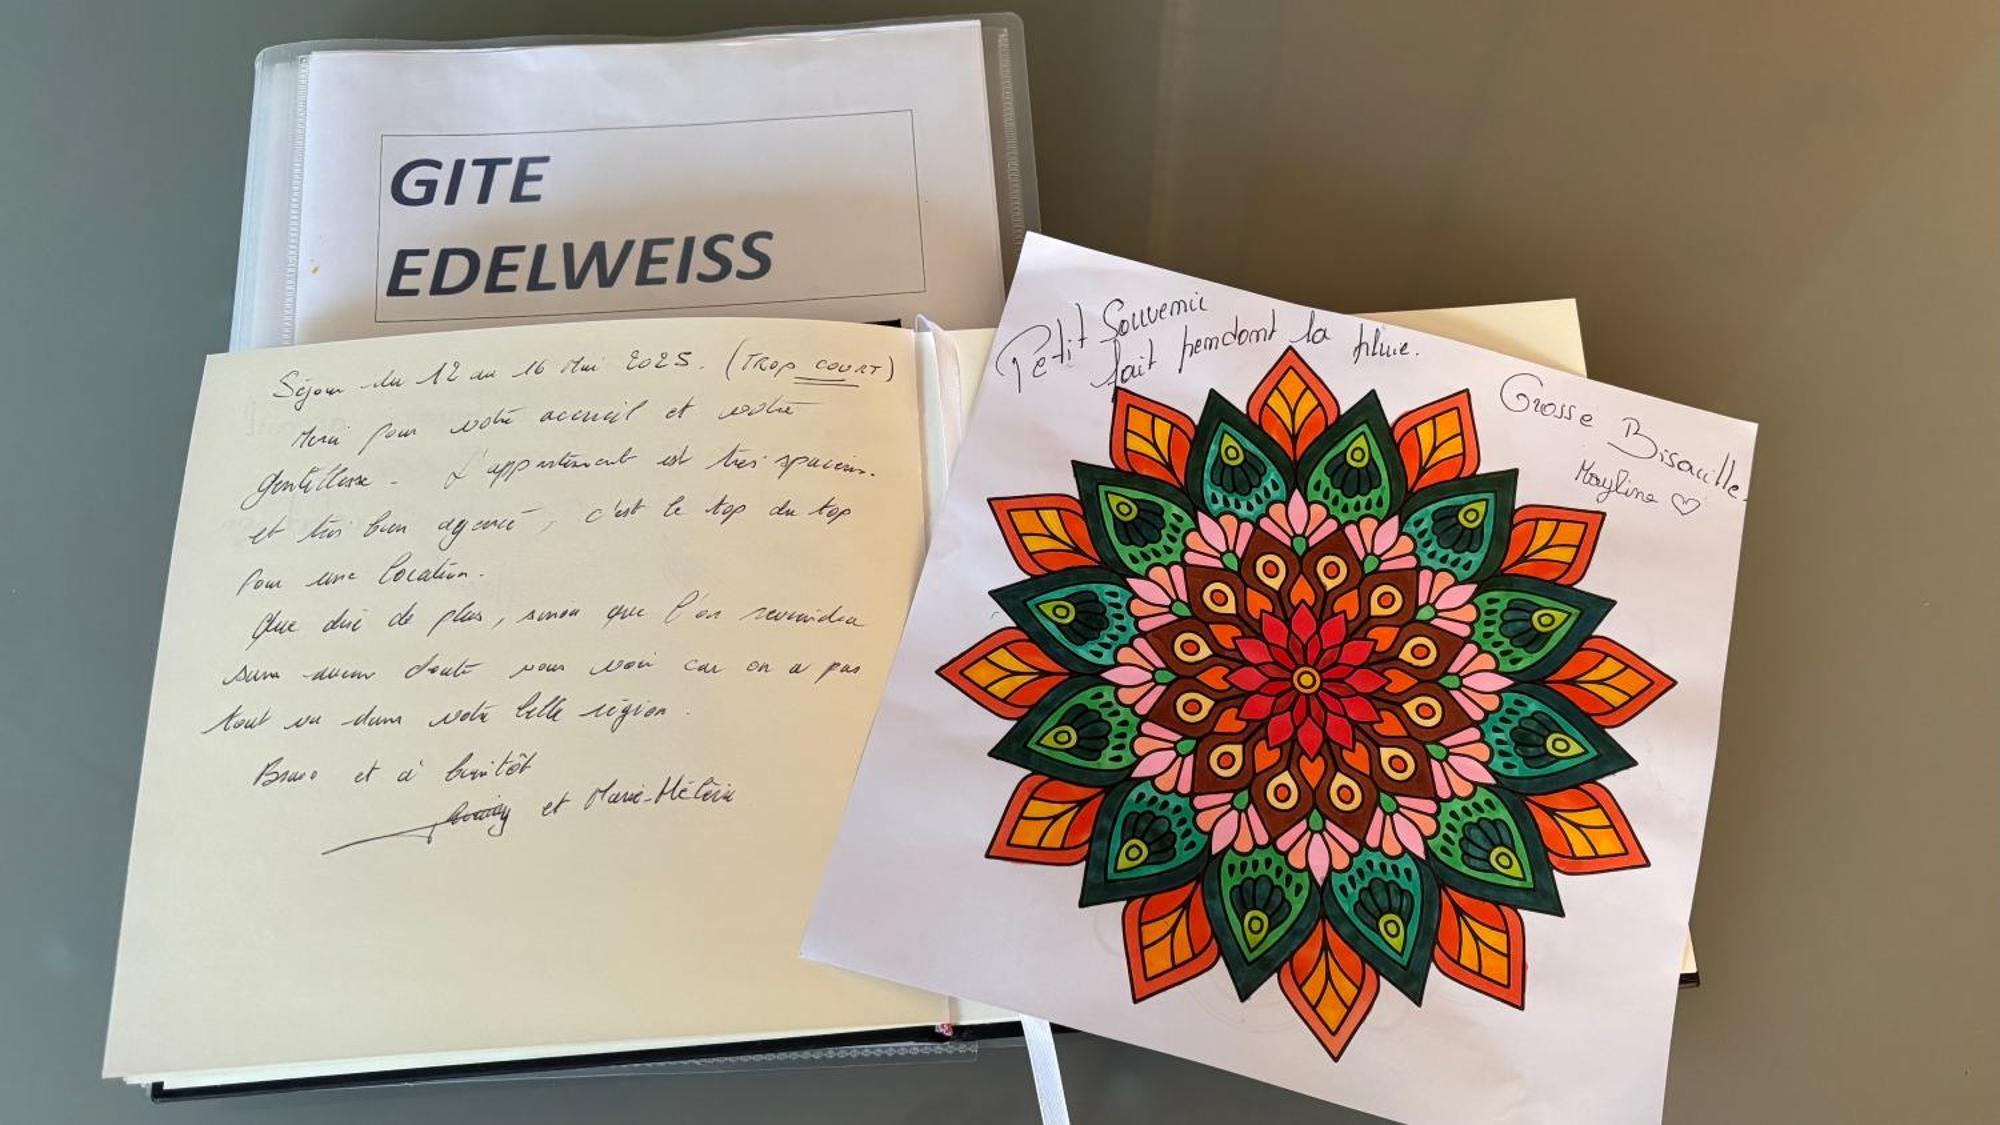 GITE
EDELWEISS
Séjour du 12 au 16 Mai 2025. (TROP COURT)
Merci pour votre accueil et votre
gentillesse. L'appartement est très spacieux
et très bien agencé, c'est le top du top
pour une location.
Que dire de plus, sinon que l'on reviendra
sans aucun doute vous voir car on a pas
tout vu dans votre belle région.
Bravo et à bientôt
et Marie-Hélène
Petit Souvenir
fait pendant la pluie.
Grosse Bisouille.
Mayline ♡